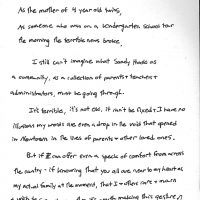 As the mother of 4 year old twins,
As someone who was on a kindergarten school tour
the morning the terrible news broke,
I still can't imagine what Sandy Hook as
a community, as a collection of parents + teachers +
administrators, must be going through.
It's terrible, it's not ok, it can't be fixed + I have no
illusions my words are even a drop in the void that opened
in Newtown in the lives of parents + other loved ones.
But if I can offer even a speck of comfort from across
the country - if knowing that you all are near to my heart as
my actual family at the moment, that I + others care + mourn